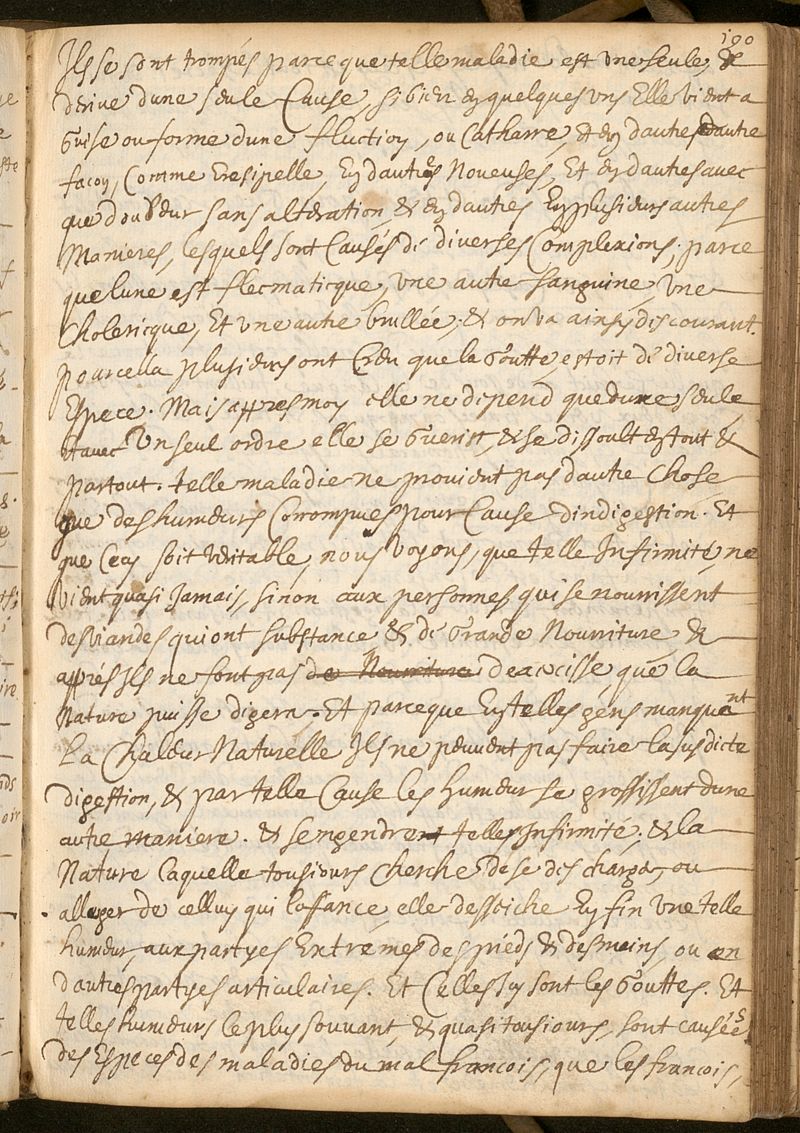 190
Ils se sont trompés parce que telle maladie est une seule, &
derive dune seule Cause, si bien eyquelques uns Elle vient a
Guise ou forme dune fluctioy, ou Catharre, et ey dautres dautre
facoy, Comme Eresipelle, Ey dautres Noueuses, Et ey dautres avec
que douleur sans alteration, & ey dautres Ey plusieurs autres
Manieres, lesquels sont Causés de diverses Complexions, parce
que lune est flecmaticque, une autre Sanguine, Une
Cholericque, Et une autre brullée, & on va ainsy discourant.
pourcella plusieurs ont Creu que la Goutte, estoit de diverse
Espece. Mais appres moy elle ne depend que dune seule
et avec Un seul ordre elle se Guerist, & se dissoult et tout &
partout. telle maladie ne provient pas dautre Chose
que des humeurs Corrompues pour Cause dindigestion. Et
que Cecy soit veritable, nous voyons, que telle Infirmité, ne
vient quasi Jamais, sinon aux personnes qui se nourrissent
des viandes qui ont substance & de Grande Nourriture &
appres Ils ne font pas de Nourriture dexercisse, que la
Nature puisse digerer. Et parce que Ey telles gens manquent
La Chaleur Naturelle Ils ne peuvent pas faire la susdicte
digestion, & par telle Cause les humeur se grossissent dune
autre maniere. & sengendrent telles Infirmité, & la
Nature laquelle tousiours Cherche de se descharger, ou
alleger de celluy qui loffance, elle desseiche Ey fin Une telle
humeur, aux partyes Extrémes des pieds & des mains, ou en
dautres partyes articulaires. Et Celles Iy sont les Gouttes. Et
telles humeurs le plus souvant, & quasi tousiours, sont causées
des Especes des maladies du mal francois, que les francois,